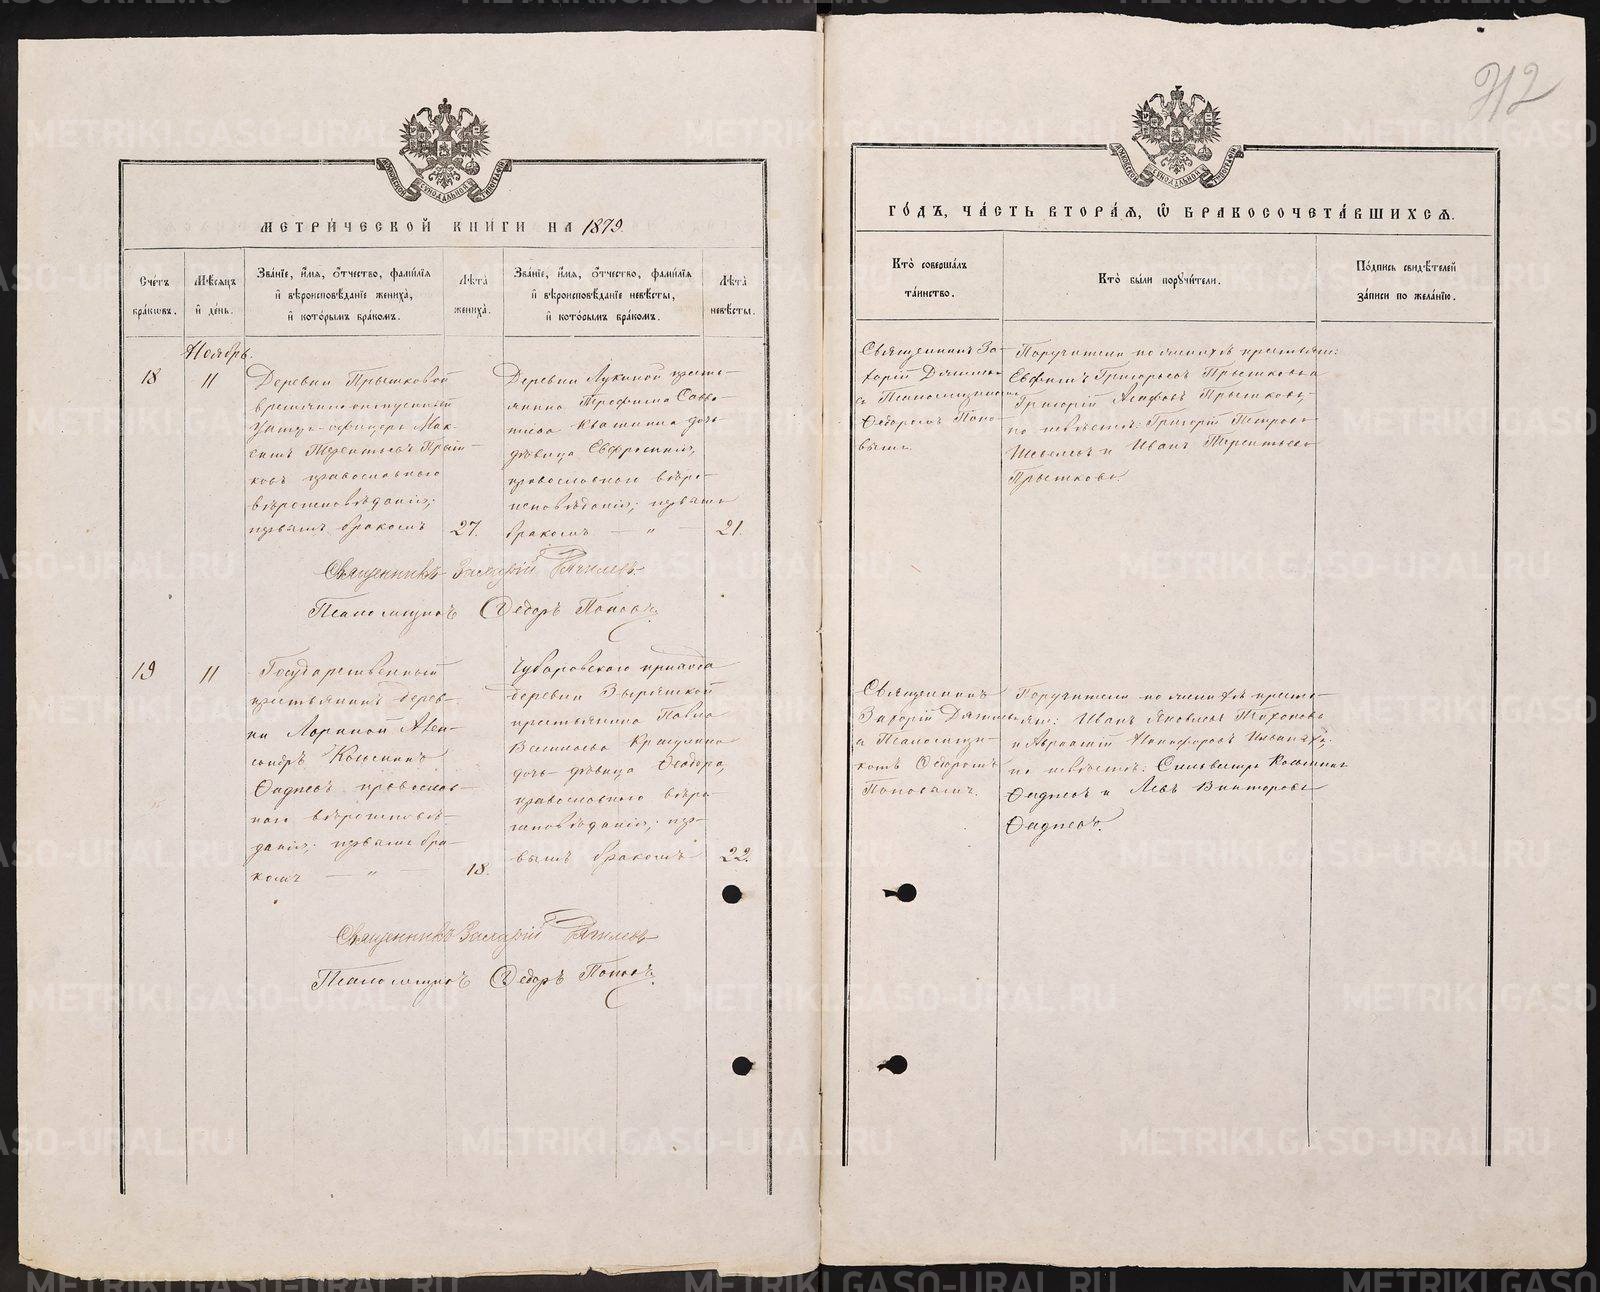 312
МЕТРИ́ЧЕСКОЙ КНИ́ГИ НА 1879.
Сче́тъ бра́кѡвъ.
Мѣ́сяцъ и҆ де́нь.
Зва́нїе, и҆́мя, ѻ҆́тчество, фами́лїя и҆ вѣроисповѣ́данїе жениха̀, и҆ кото́рымъ бра́комъ.
Лѣ́та жениха̀.
Зва́нїе, и҆́мя, ѻ҆́тчество, фами́лїя и҆ вѣроисповѣ́данїе невѣ́сты, и҆ кото́рымъ бра́комъ.
Лѣ́та невѣ́сты.
Ноябрь.
18
11
Деревни Прытковой
временно отпускный
Унтеръ-офицеръ Мак-
симъ Терентьевъ Прыт-
ковъ православнаго
вѣроисповѣданія;
первымъ бракомъ
27.
Деревни Лукиной кресть-
янина Трофима Савва-
тиева Квашнина дочь
дѣвица Евфросинія,
православнаго вѣро-
исповѣданія; первымъ
бракомъ — „ —
21.
Священникъ Захарій Дягилевъ
Псаломщикъ Ѳедоръ Поповъ.
19
11
Государственный
крестьянинъ дерев-
ни Лариной Алек-
сандръ Косминъ
Ѳадѣевъ православ-
наго вѣроисповѣ-
данія; первымъ бра-
комъ — „ —
18.
Чубаровскаго прихода
деревни Зырянской
крестьянина Павла
дочь-дѣвица Ѳеодора,
православнаго вѣро-
исповѣданія; пер-
вымъ бракомъ
22.
Священникъ Захарій Дягилевъ
Псаломщикъ Ѳедоръ Поповъ.
ГО́ДЪ, ЧА́СТЬ ВТОРА́Я, Ѽ БРАКОСОЧЕТА́ВШИХСЯ.
Кто̀ соверша́лъ та́инство.
Кто̀ бы́ли порꙋчи́тели.
По́дпись свидѣ́телей за́писи по жела́нїю.
Священникъ За-
харій Дягилевъ
съ Псаломщикомъ
Ѳедоромъ Попо-
вымъ.
Поручители по женихѣ крестьяне:
Евфимъ Григорьевъ Прытковъ и
Григорій Агафовъ Прытковъ;
по невѣстѣ: Григорій Петровъ
и Иванъ Терентьевъ
Прытковъ.
Священникъ
Захарій Дягилевъ
съ Псаломщи-
комъ Ѳедоромъ
Поповымъ.
Поручители по женихѣ кресть-
яне: Иванъ Яковлевъ
и Авраамій Никифоровъ
по невѣстѣ: Сильвестръ Косминъ
Ѳадѣевъ и Левъ Викторовъ
Ѳадѣевъ.
METRIKI.GASO-URAL.RU